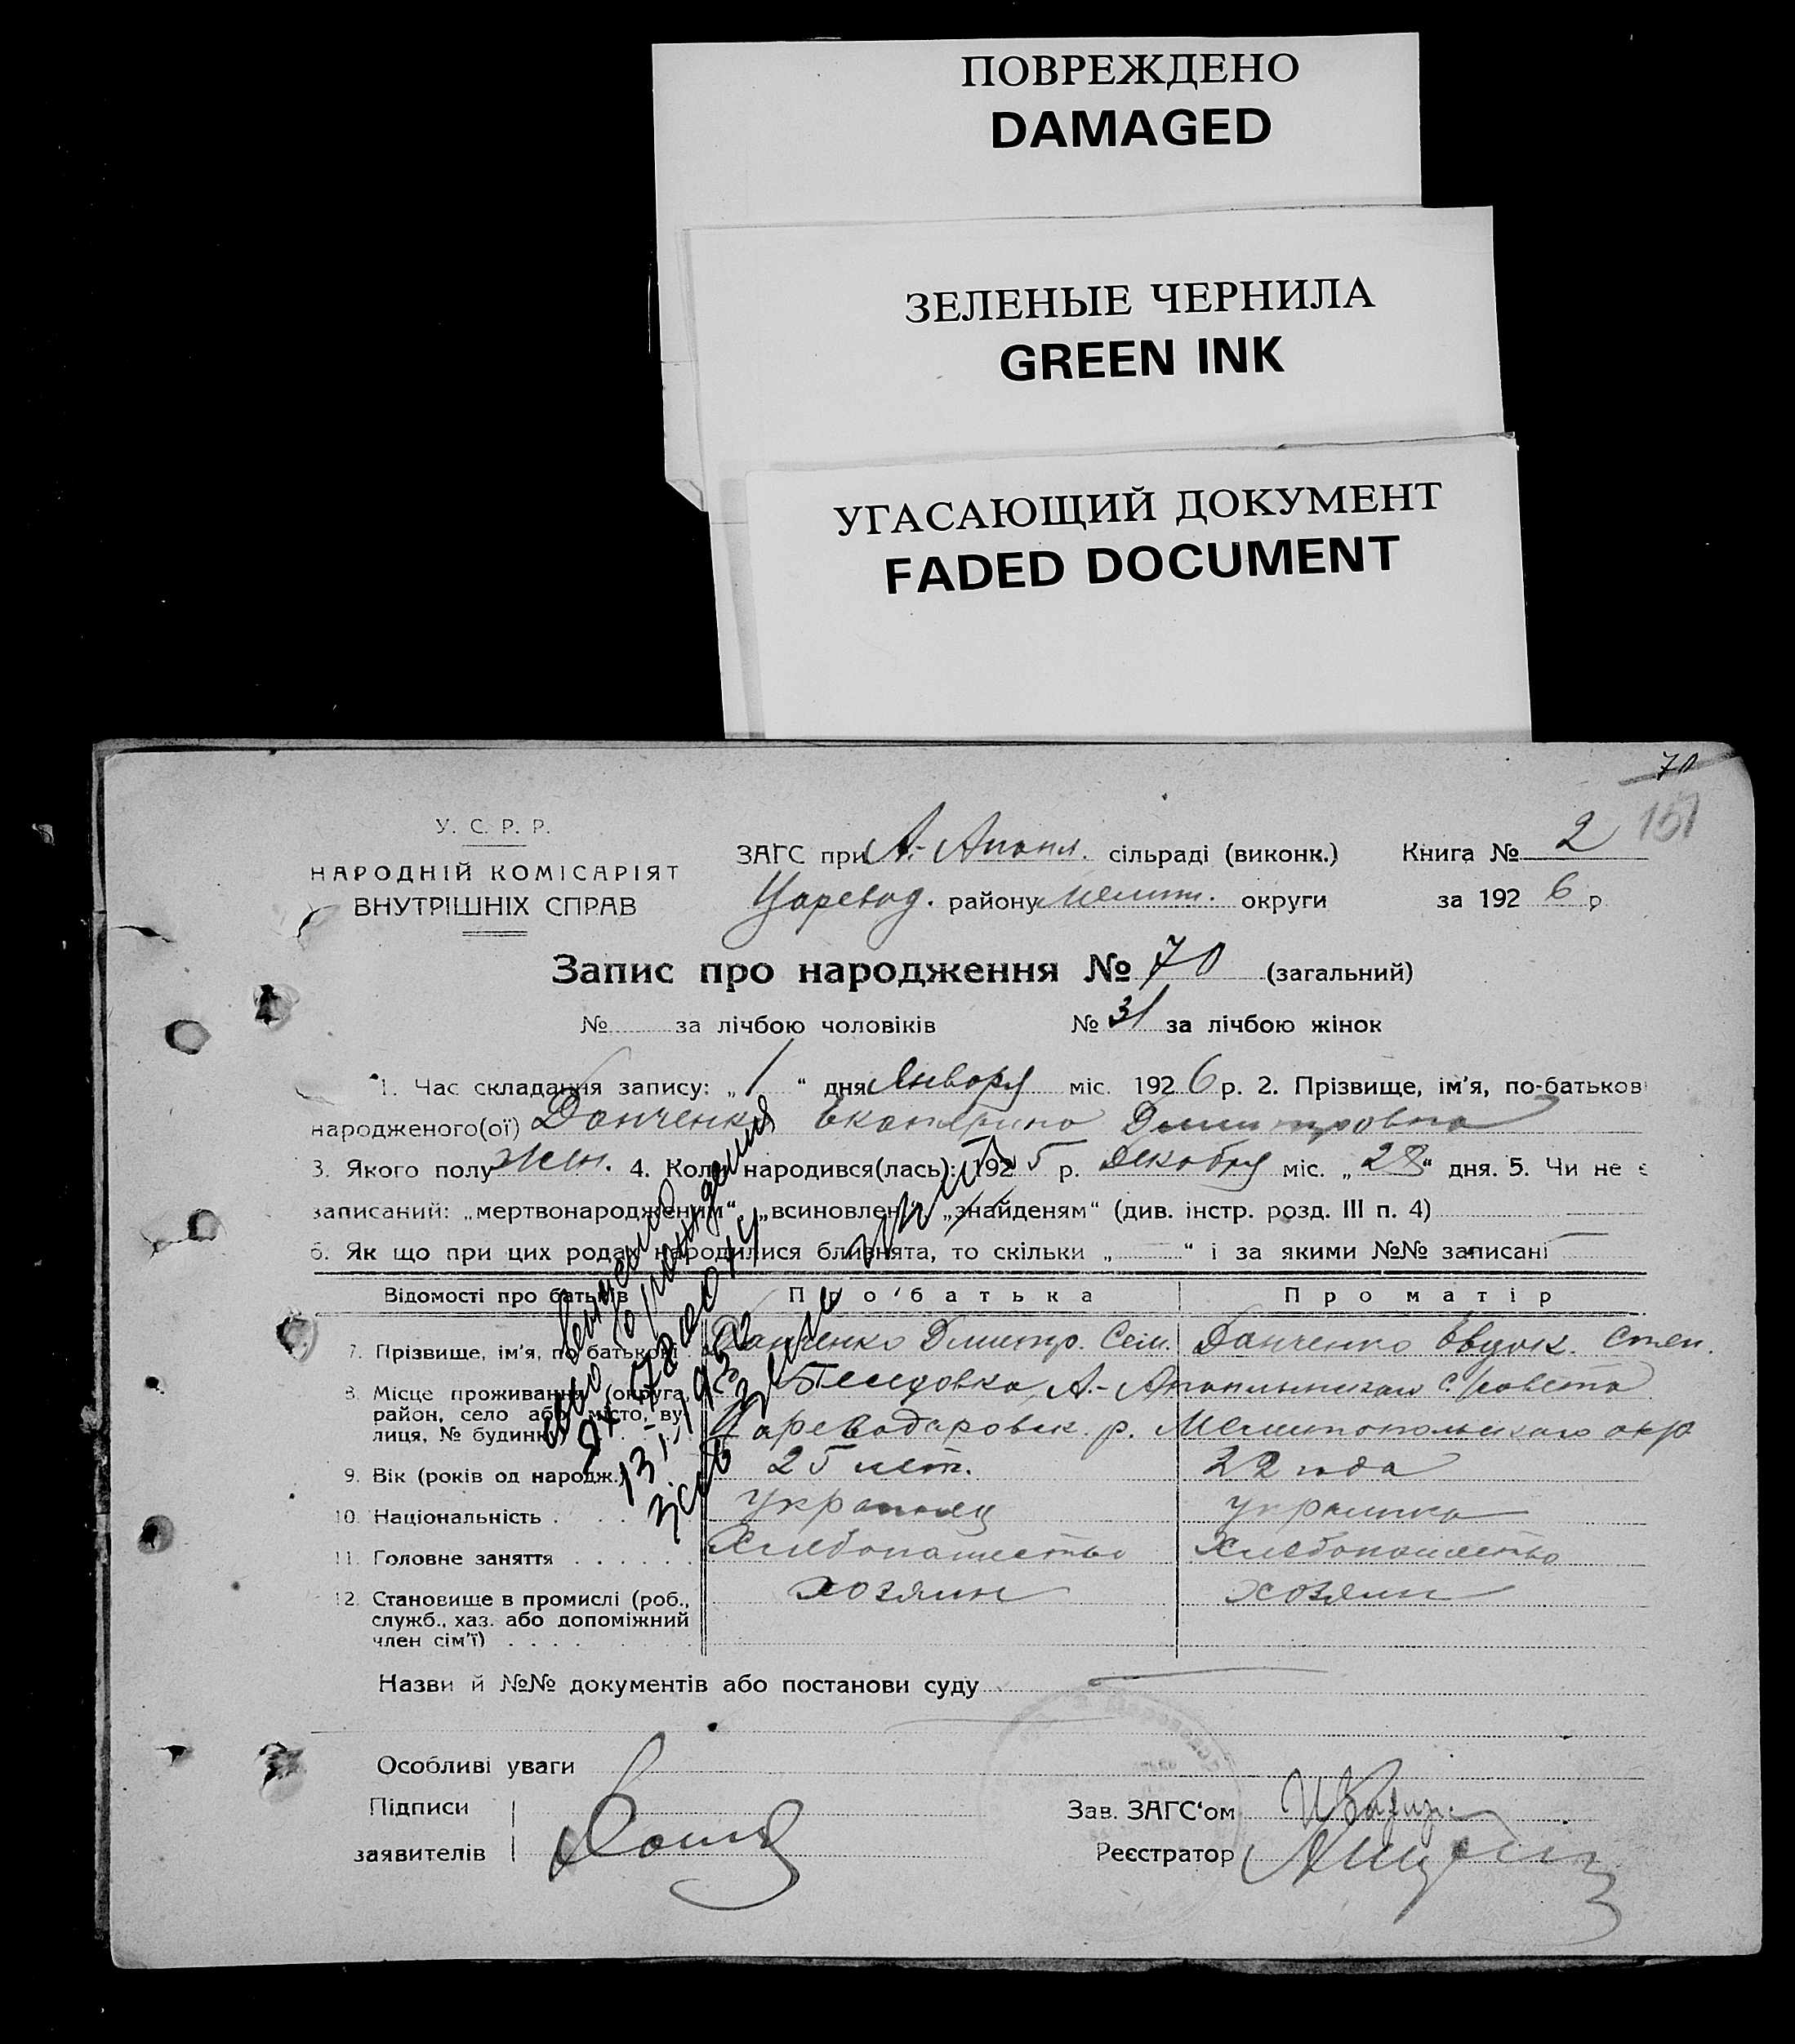 ПОВРЕЖДЕНО
DAMAGED
ЗЕЛЕНЫЕ ЧЕРНИЛА
GREEN INK
УГАСАЮЩИЙ ДОКУМЕНТ
FADED DOCUMENT
70
151
У. С. Р. Р.
НАРОДНІЙ КОМІСАРІЯТ
ВНУТРІШНІХ СПРАВ
ЗАГС при А.- Апанл. сільраді (виконк.) Книга № 2
Царевод. району Мелит. округи за 192 6 р
Запис про народження № 70 (загальний)
№ за лічбою чоловіків № 31 за лічбою жінок
1. Час складання запису: „ 1 “ дня Января міс. 192 6 р. 2. Прізвище, ім’я, по-батькові
народженого(ої) Данченко Екатерина Дмитровна
3. Якого полу жен. 4. Коли народився(лась): 192 5 р. Декабря міс. „ 28 “ дня. 5. Чи не є
записаний: „мертвонародженим“, „всиновлен „знайденям“ (див. інстр. розд. III п. 4)
6. Як що при цих родах народилися близнята, то скільки „ “ і за якими №№ записані
Відомості про батьків Про батька Про матір
7. Прізвище, ім’я, по батькові Данченко Дмитр. Сем. Данченко Евдок. Степ.
8. Місце проживання (округа, район, село або місто, вулиця, № будинку
А.- с. совета
Цареводаровск. р. Мелитопольского окр.
9. Вік (років од народж.) 25 лет. 22 года
10. Національність . украинец украинка
11. Головне заняття . . . . . . Хлебопашество Хлебопашество
12. Становище в промислі (роб., хозяин хозяин
служб., хаз. або допоміжний
член сім’ї) . . . .
Назви й №№ документів або постанови суду
Особливі уваги
Підписи
заявителів
Зав. ЗАГС‘ом
Реєстратор